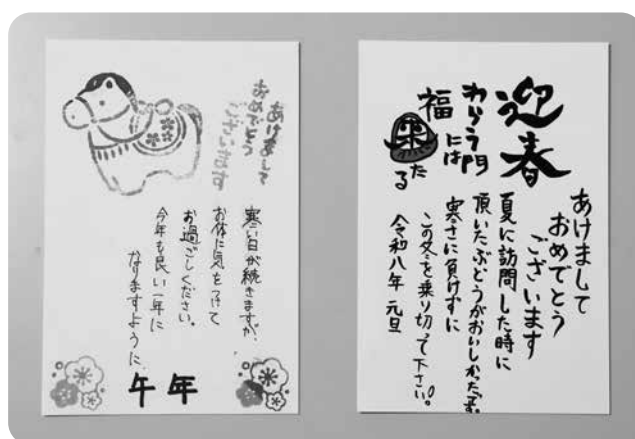 あけまして
おめでとう
ございます
寒い日が続きますが、
お体に気をつけて
お過ごしください。
今年も良い一年に
なりますように
午年
迎春
わらう門
には
福
来たる
あけまして
おめでとう
ございます
夏に訪問した時に
頂いたぶどうがおいしかったです。
寒さに負けずに
この冬を乗り切って下さい。
令和八年 元旦